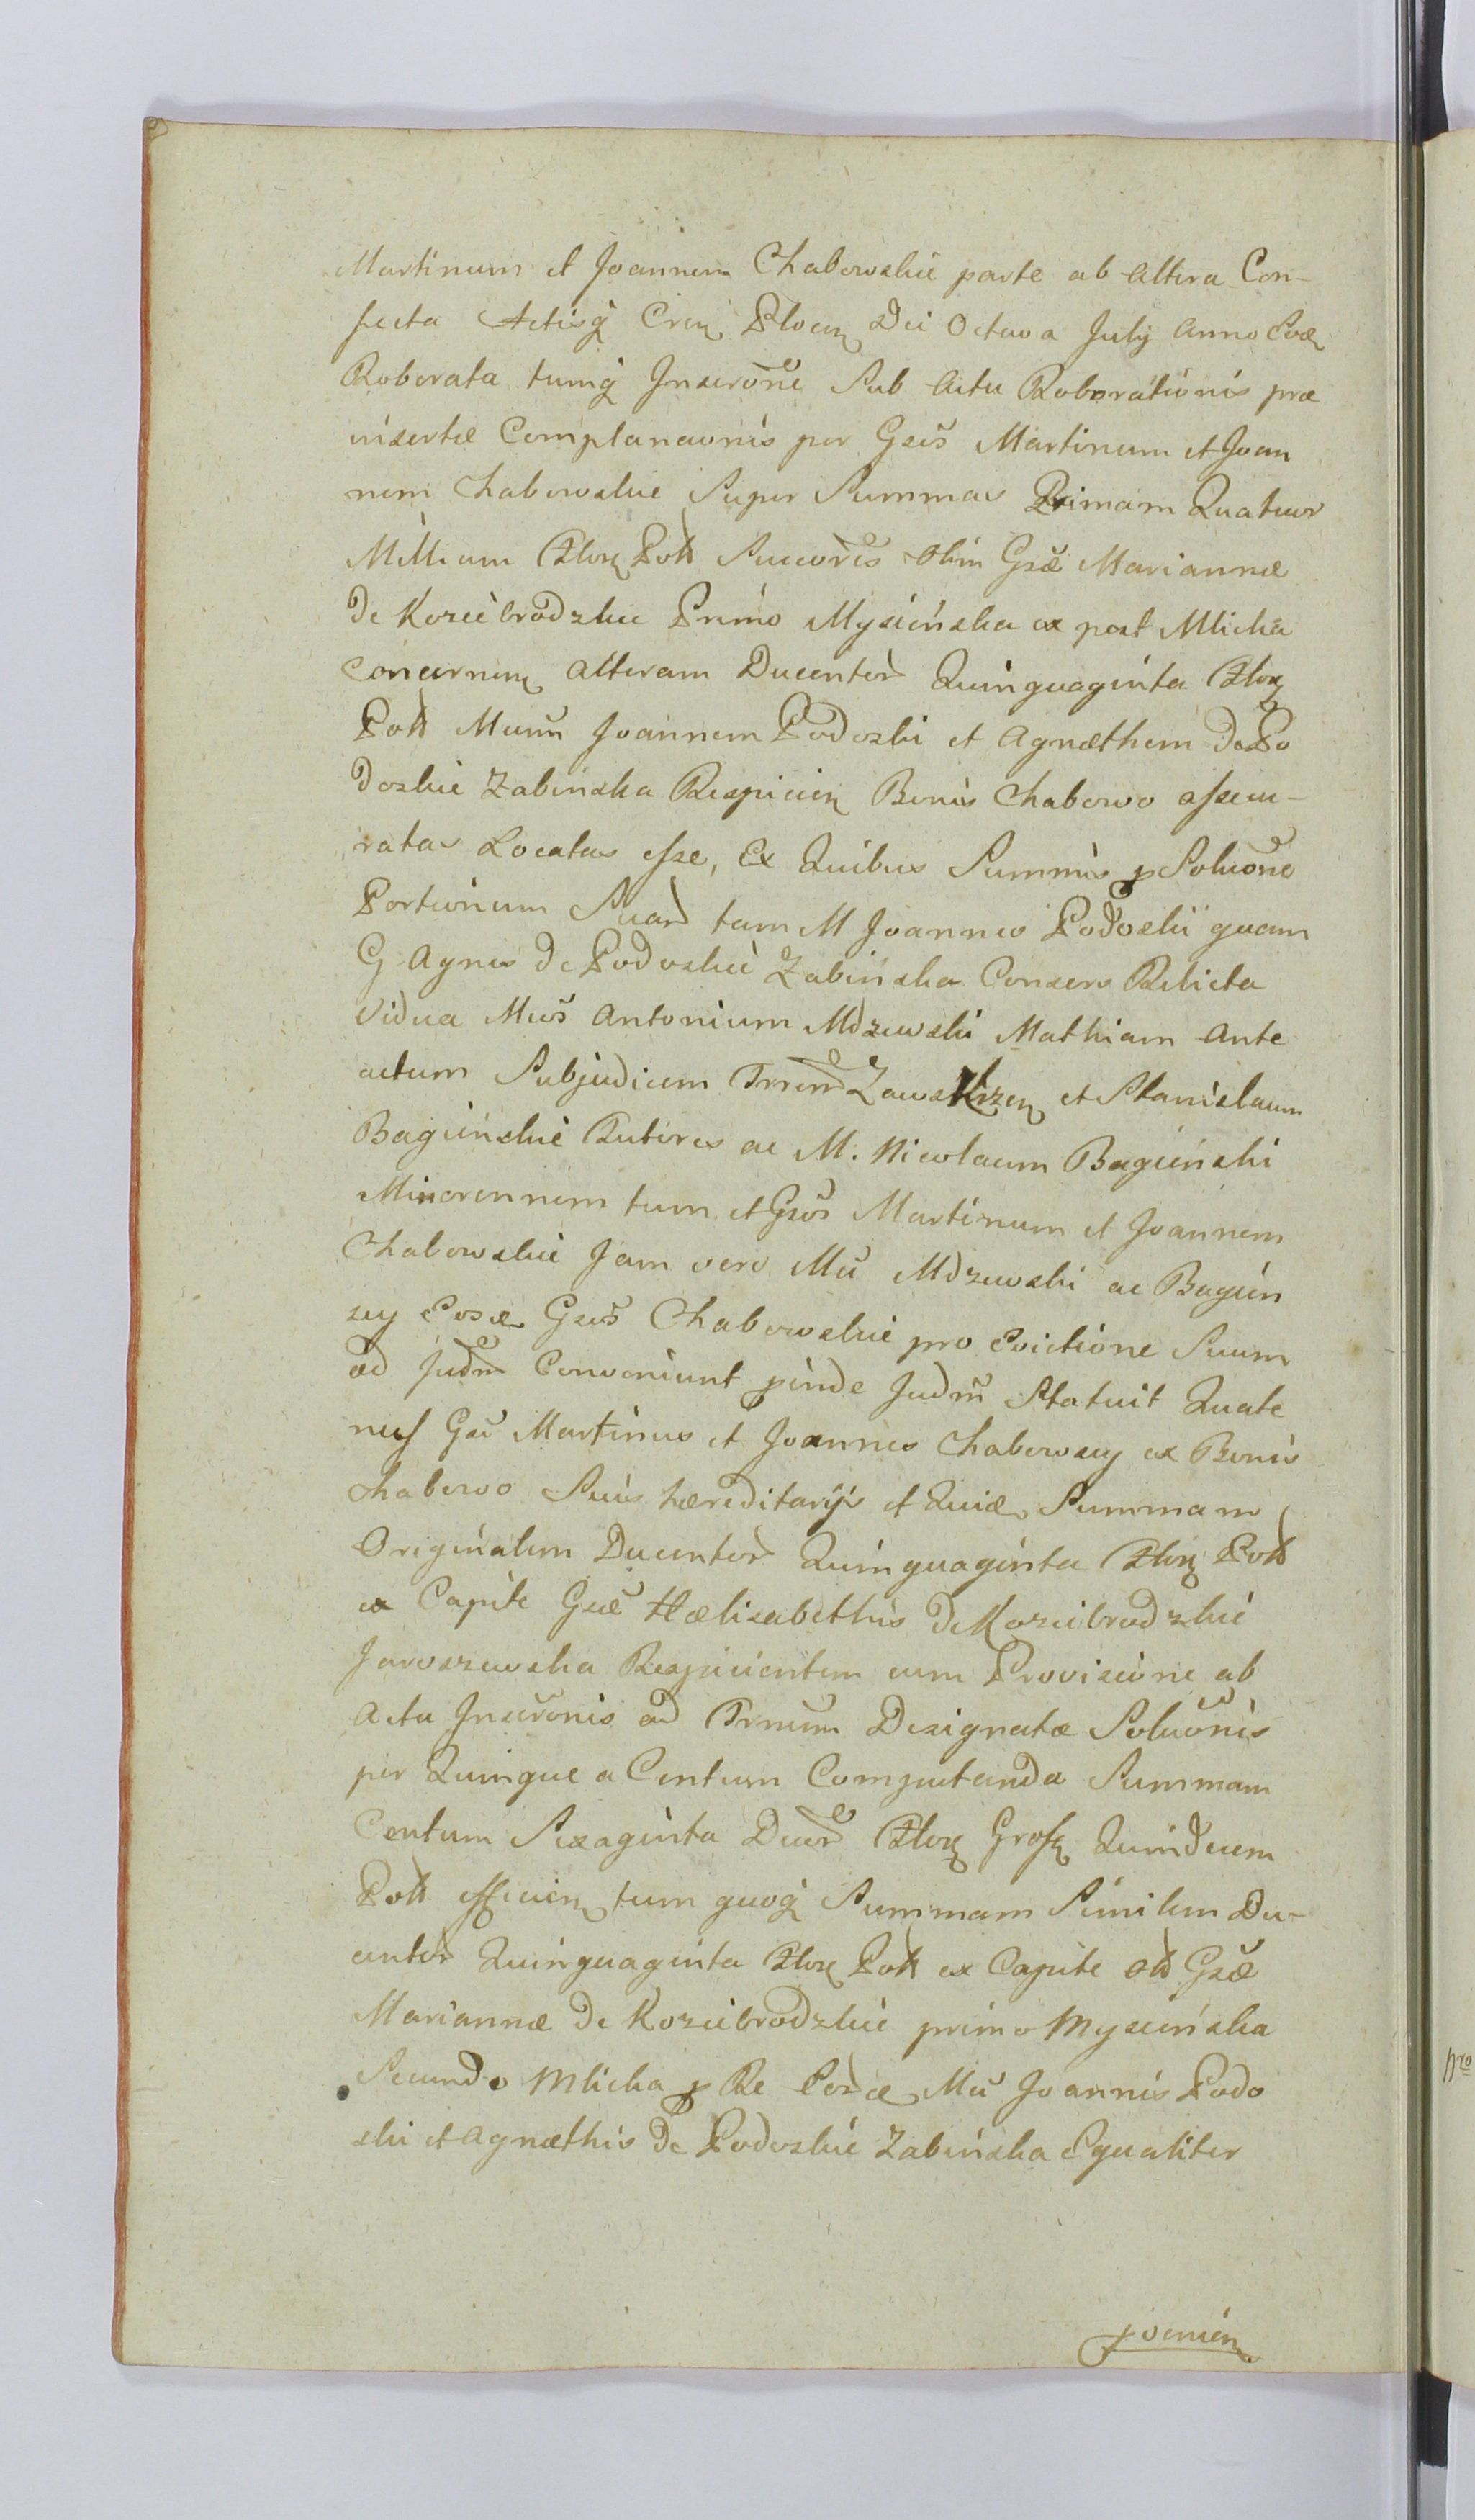 Martinum et Joannem Chabowskie parte ab altera Con-
fecta Actisq́ Cren Plocen Die Octava July Anno Eod
Roborata tumq́ Inscrõne Sub Actu Roborationis præ
insertæ Complanaõnis per Gsõs Martinum et Joan
nem Chabowskie Super Summas Primam Quatuor
Millium Flor Poll Successõris olim Gsæ Mariannæ
De Koziebrodzkie Primo Mysieńska ex post Mlicka
concernen alteram Ducentor Quinquaginta Flor
Poll Mucũm Joannem Podoski et Agnæthem de Po
doskie Zabińska Respicien Bonis Chabowo assecu-
ratas Locatas esse, Ex Quibus Summis p Soluõne
Portionum Suar tam M Joannes Podoskii quam
G Agnes de Podoskie Zabińska Consors Relicta
Vidua Mcõs Antonium Mdzewski Mathiam Ante
actum Subjudicem Trren Zawskrzen et Stanislaum
Bagieńskie Tutores ac M. Nicolaum Bagieński
Minorennem tum et Gsõs Martinum et Joannem
Chabowskie Jam vero Mcĩ Mdzewski ac Bagień
scy Eosdẽ Gsõs Chabowskie pro Evictione Suum
ad Judm Conveniunt pinde Judm̃ Statuit Quate
nus Gsĩ Martinus et Joannes Chabowscy ex Bonis
Chabowo Suis hæreditarijs et Summam
Originalem Ducentor Quinquaginta Flor Poll
ex Capite Gsæ Hælisabethis de Koziebrodzkie
Jaroszewska Respicientem cum Provisione ab
Actu Inscrõnis ad Trnum Designatæ Soluõnis
per Quinque a Centum Computanda Summam
Centum Sexaginta Duor Flor Gross Quindecem
Poll efficien tum quoq́ Summam Similem Du-
centor Quinquaginta Flor Poll ex Capite Oll Gsæ
Mariannæ de Koziebrodzkie primo Mysieńska
Secundo Mlicka p Re Mcĩ Joannis Podo
ski et Agnæthis de Podoskie Zabińska Equaliter
pvenien